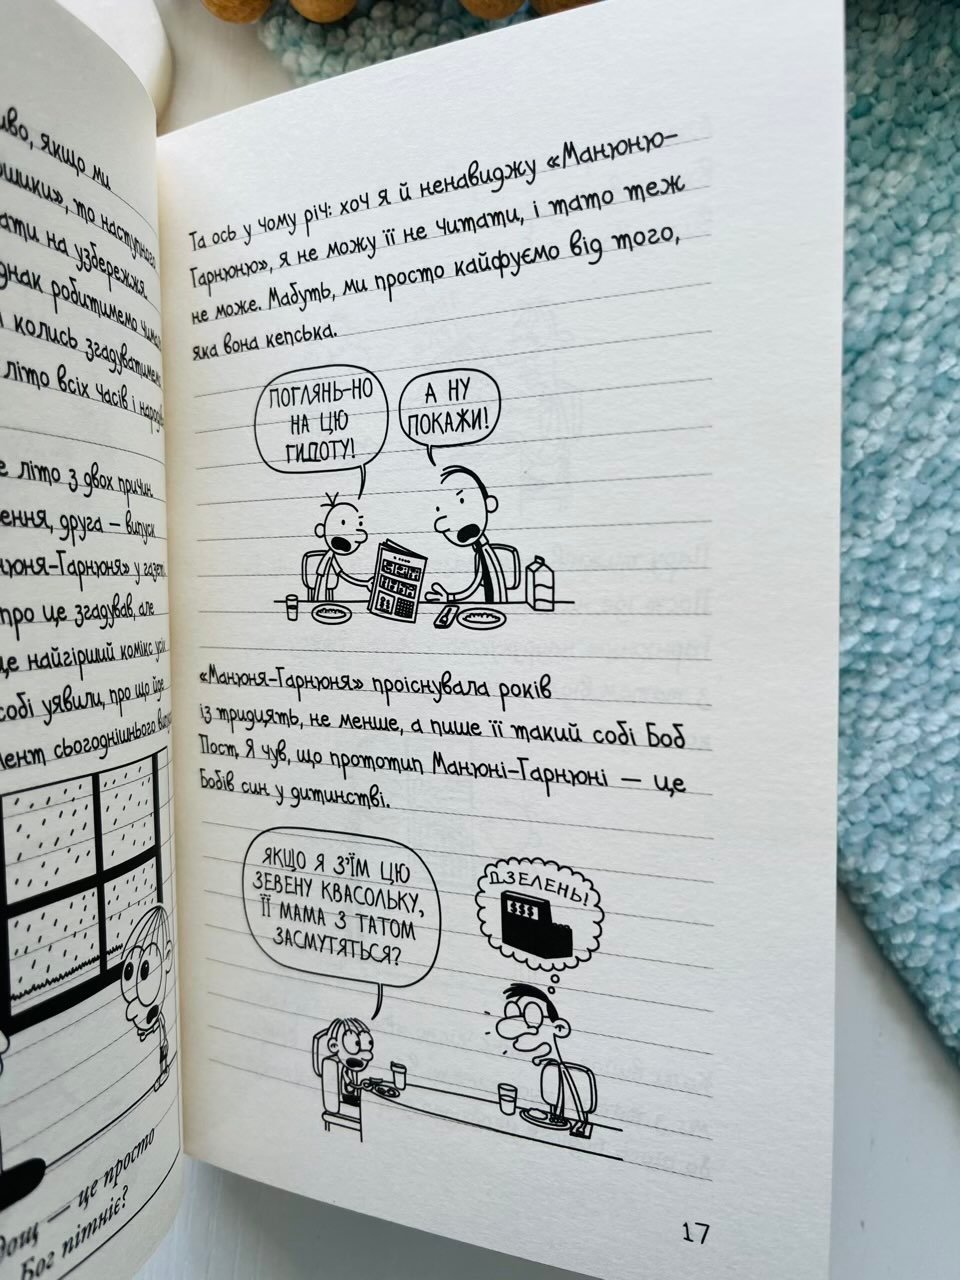 якщо ми
то наступного
на узбережжя.
робитимемо
колись згадуватимемо
літо всіх часів і
літо з двох причин.
друга — випуск
у газеті.
про це згадував, але
це найгірший комікс усіх
собі уявили, про що йде
сьогоднішнього
— це просто
Бог пітніє?
Та ось у чому річ: хоч я й ненавиджу «Манюню-
Гарнюню», я не можу її не читати, і тато теж
не може. Мабуть, ми просто кайфуємо від того,
яка вона кепська.
ПОГЛЯНЬ-НО
НА ЦЮ
ГИДОТУ!
А НУ
ПОКАЖИ!
«Манюня-Гарнюня» проіснувала років
із тридцять, не менше, а пише її такий собі Боб
Пост. Я чув, що прототип Манюні-Гарнюні — це
Бобів син у дитинстві.
ЯКЩО Я З'ЇМ ЦЮ
ЗЕВЕНУ КВАСОЛЬКУ,
ЇЇ МАМА З ТАТОМ
ЗАСМУТЯТЬСЯ?
ДЗЕЛЕНЬ!
$$$
17